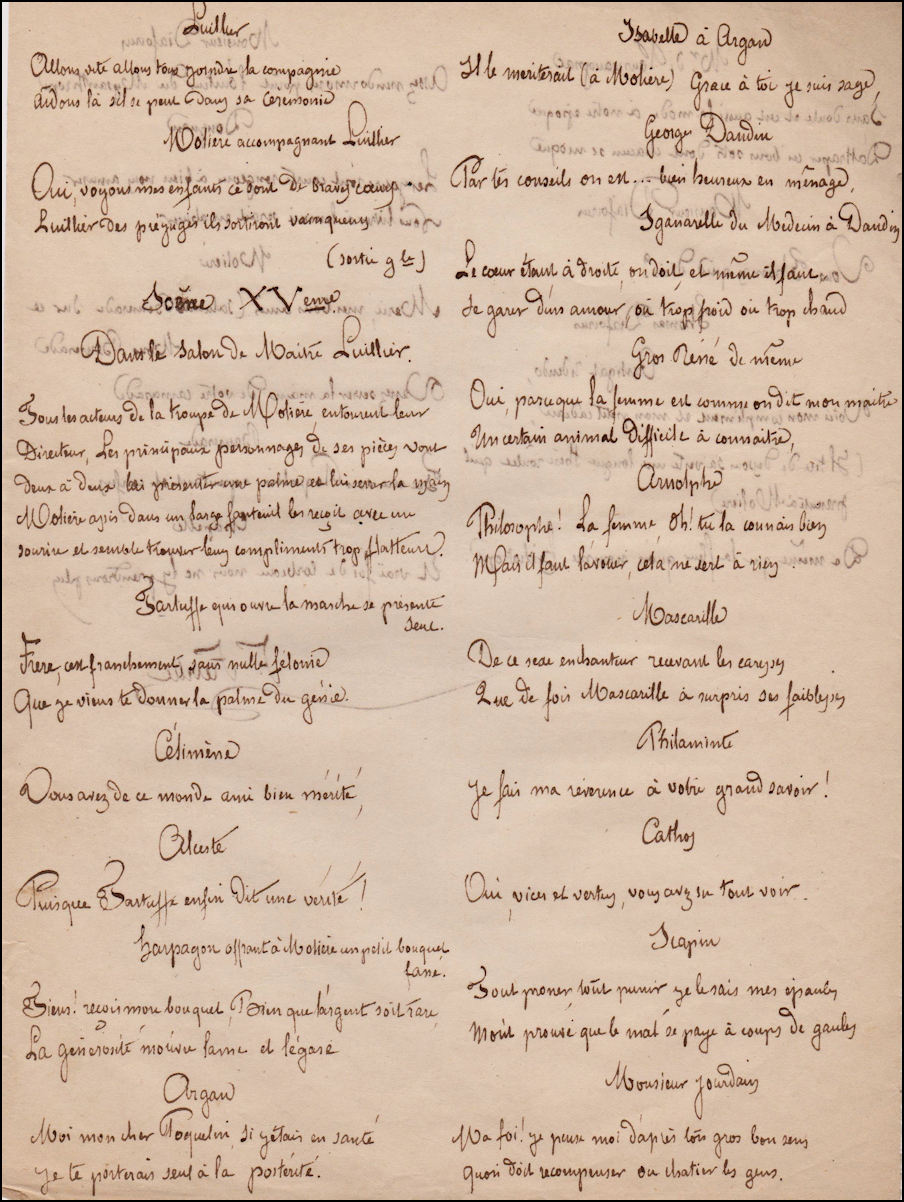 Luillier
Allons vite allons tous joindre la compagnie
aidons là s'il se peut dans sa cérémonie
Molière accompagnant Luillier
Oui, voyons mes enfants ce dont de braves cœurs
Luillier des préjugés ils sortiront vainqueurs
(sortie gle)
Scène XVeme
Dans le salon de Maitre Luillier.
Tous les acteurs de la troupe de Molière, entourent leur
Directeur, Les principaux personnages de ses pièces vont
deux à deux lui présenter une palme et lui serrer la main
Molière assis dans un large fauteuil les reçoit avec un
sourire et semble trouver leurs compliments trop flatteurs.
Tartuffe qui ouvre la marche se présente
seul.
Frère, c'est franchement sans nulle félonie
Que je viens te donner la palme du génie.
Célimène
Vous avez de ce monde ami bien mérité,
Alceste
Puisque Tartuffe enfin dit une vérité!
harpagon offrant à Molière un petit bouquet
fané.
Tiens! reçois mon bouquet, Bien que l'argent soit rare,
La générosité m'ouvre l'ame et l'égare
Argan
Moi mon cher Poquelin, si j'étais en santé
je te porterais seul à la postérité.
Isabelle à Argan
Il le mériterait (à Molière) Grace à toi je suis sage,
George Dandin
Par tes conseils on est... bien heureux en ménage,
Sganarelle du Medecin à Dandin
Le cœur étant à droite, on doit, et même il faut
se garer d'un amour, ou trop froid ou trop chaud
Gros René de même
Oui, parceque la femme est comme on dit mon maitre
Un certain animal difficile à connaitre,
Arnolphe
Philosophe! La femme Oh! tu la connais bien
Mais il faut l'avouer, cela ne sert à rien
Mascarille
De ce sexe enchanteur recevant les caresses
Que de fois Mascarille à surpris ses faiblesses
Philaminte
Je fais ma révérence à votre grand savoir!
Cathos
Oui, vices et vertus, vous avez su tout voir.
Scapin
Tout proner, tout punir je le sais mes épaules
M'ont prouvé que le mal se paye à coups de gaules
Monsieur Jourdain
Ma foi! je pense moi d'après ton gros bon sens
qu'on doit recompenser ou chatier les gens.